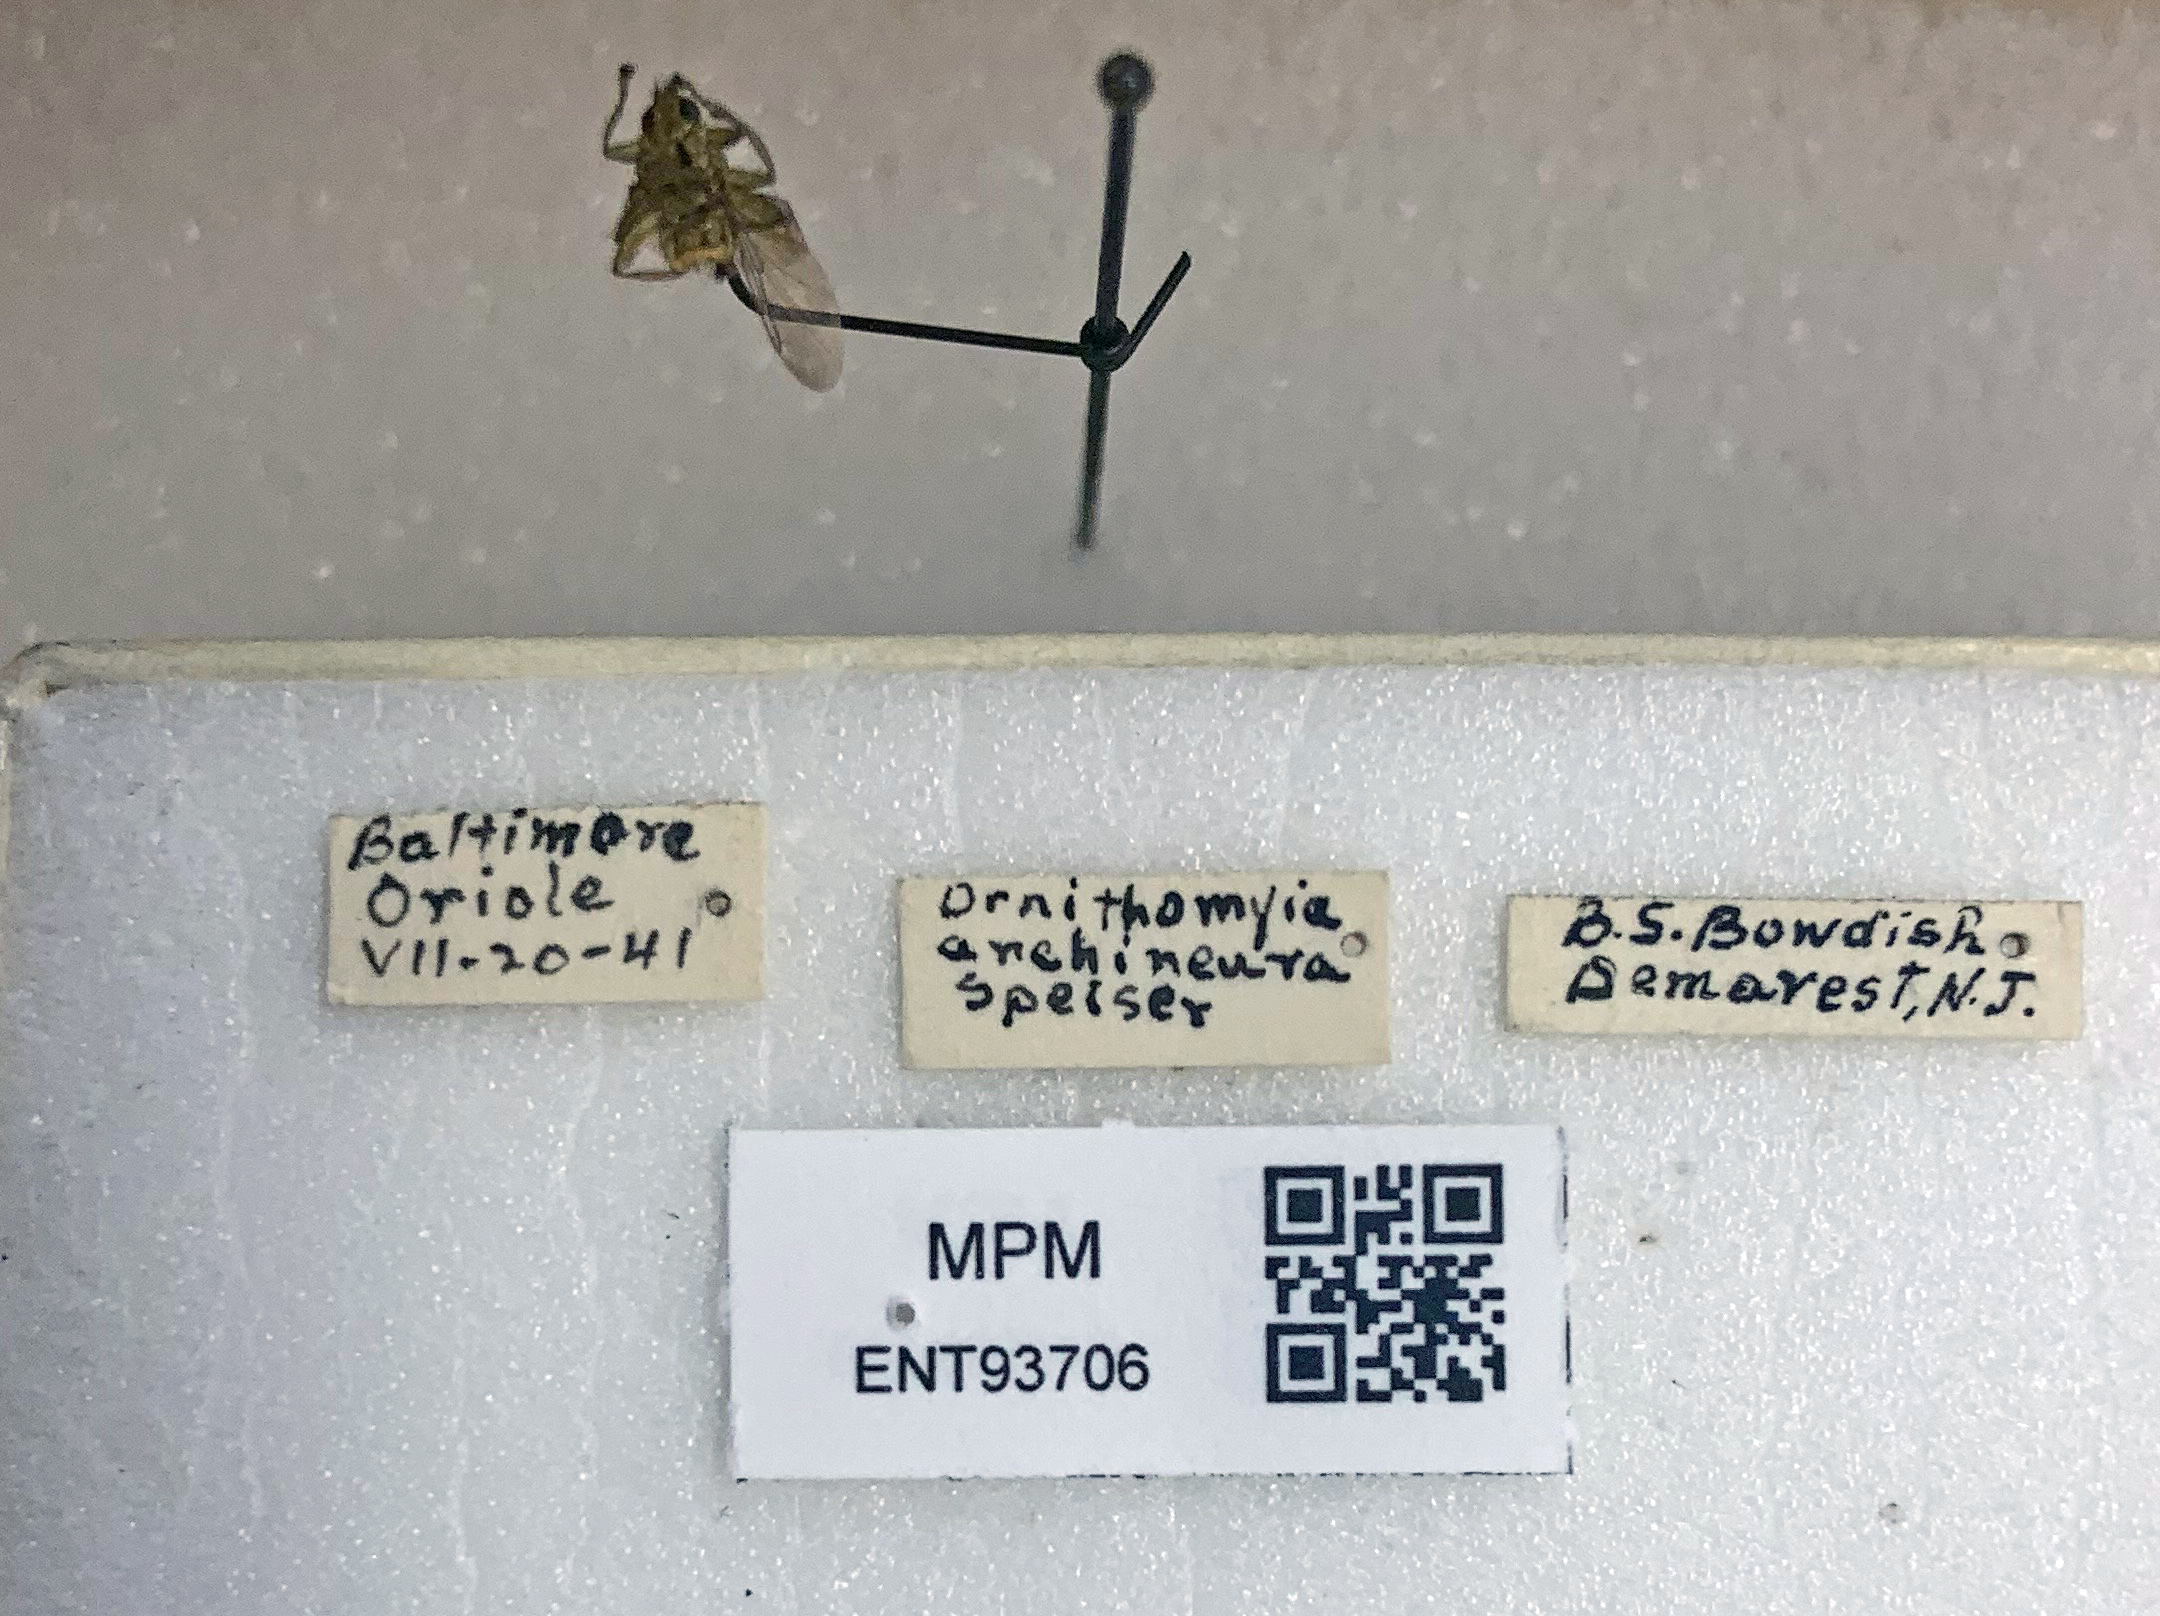 Baltimore
Oriole
VII-20-41
Ornithomyia
anchineura
Speiser
B.S. Bowdish
Demarest, N.J.
MPM
ENT93706